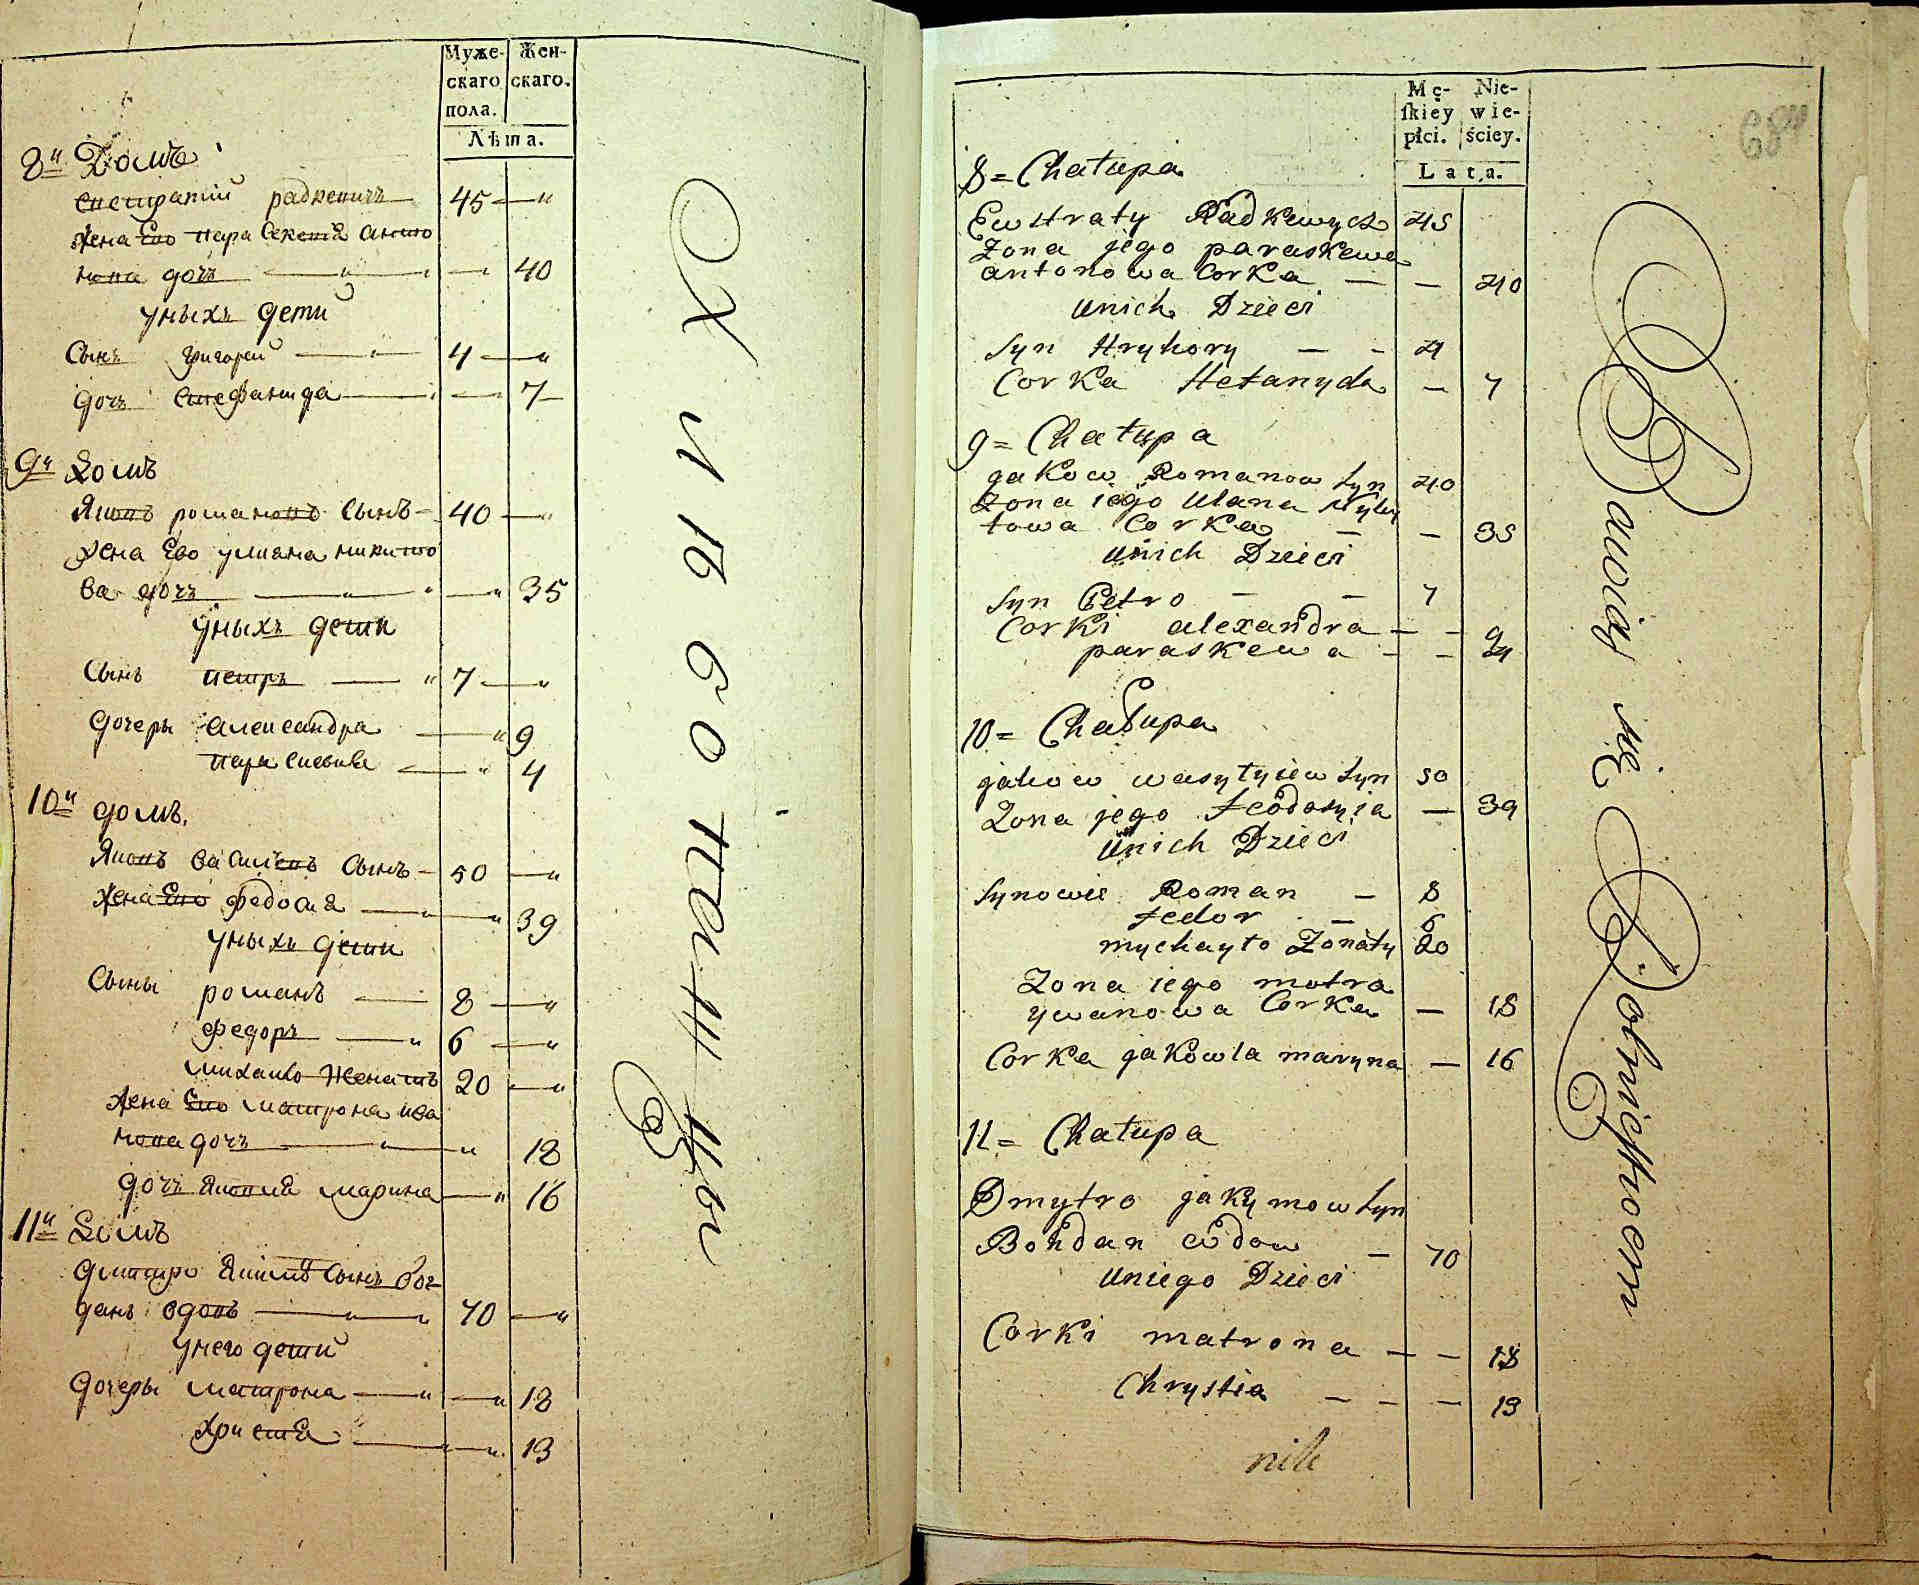 Муже-
скаго
пола.
Жен-
скаго.
Лѣта.
8й Домъ
Евстратий радкевичъ 45 — "
Жена Ево параскевiя антоно
нова дочъ — " — 40
уныхъ дети
Сынъ григорей — " 4 — "
дочъ Стефанида — 7
9й Домъ
Яковъ романовъ Сынъ — 40 — "
Жена Ево улияна никито
ва дочъ — " — " 35
уныхъ дети
Сынъ петръ — " 7 — "
дочери александра — " 9
параскевия — " 4
10й домъ
Яковъ васильевъ Сынъ — 50 — "
Жена Ево федосiя — " — " 39
уныхъ дети
Сыны романъ — 8 — "
федоръ — " 6 — "
михайло женатъ 20 — "
Жена Ево матрона ива
нова дочъ — " — " 18
дочъ Яковлiя марина — " 16
11й Домъ
дмитро Якимовъ Сынъ бог
данъ вдовъ — " — " 70 — "
унего дети
дочеры матрона — " — " 18
христiя — " — " 13
Живота
Mę-
skiey
płci.
Nie-
wie-
ściey.
Lata.
68
8 = Chałupa
Ewstraty Radkewycz 45
Zona jego paraskewa
antonowa Corka — — 40
unich Dzieci
Syn Hryhory — - 4
Corka Stefanyda — 7
9 = Chałupa
jakow Romanow Syn 40
Zona iego Ulana Myky
towa Corka — — 35
unich Dzieci
Syn Petro — — 7
Corki alexandra — — 9
paraskewa - — 4
10 = Chałupa
jakow wasylyiew Syn 50
Zona jego feodosyia — 39
unich Dzieci
Synowie Roman — 8
fedor — 6
mychayło Zonaty 20
Zona iego motra
ywanowa Corka — 18
Corka jakowla maryna — 16
11 = Chałupa
Dmytro jakymow Syn
Bohdan wdow — 70
uniego Dzieci
Corki matrona — — 18
Chrystia — - — 13
Bawiąy się Rolnictwem